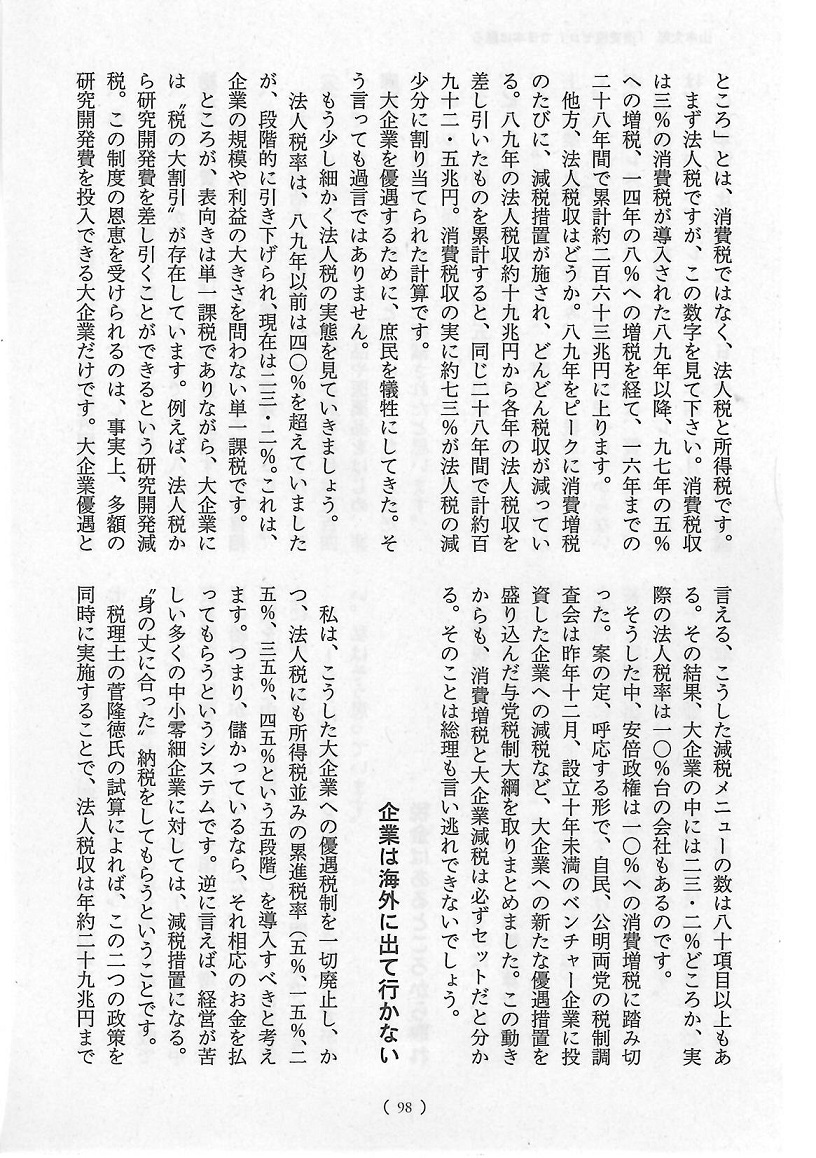 ところ」とは、消費税ではなく、法人税と所得税です。
　まず法人税ですが、この数字を見て下さい。消費税収
は三%の消費税が導入された八九年以降、九七年の五%
への増税、一四年の八%への増税を経て、一六年までの
二十八年間で累計約二百六十三兆円に上ります。
　他方、法人税収はどうか。八九年をピークに消費増税
のたびに、減税措置が施され、どんどん税収が減ってい
る。八九年の法人税収約十九兆円から各年の法人税収を
差し引いたものを累計すると、同じ二十八年間で計約百
九十二・五兆円。消費税収の実に約七三%が法人税の減
少分に割り当てられた計算です。
　大企業を優遇するために、庶民を犠牲にしてきた。そ
う言っても過言ではありません。
　もう少し細かく法人税の実態を見ていきましょう。
　法人税率は、八九年以前は四〇%を超えていました
が、段階的に引き下げられ、現在は二三・二%。これは、
企業の規模や利益の大きさを問わない単一課税です。
　ところが、表向きは単一課税でありながら、大企業に
は〝税の大割引〟が存在しています。例えば、法人税か
ら研究開発費を差し引くことができるという研究開発減
税。この制度の恩恵を受けられるのは、事実上、多額の
研究開発費を投入できる大企業だけです。大企業優遇と
言える、こうした減税メニューの数は八十項目以上もあ
る。その結果、大企業の中には二三・二%どころか、実
際の法人税率は一〇%台の会社もあるのです。
　そうした中、安倍政権は一〇%への消費増税に踏み切
った。案の定、呼応する形で、自民、公明両党の税制調
査会は昨年十二月、設立十年未満のベンチャー企業に投
資した企業への減税など、大企業への新たな優遇措置を
盛り込んだ与党税制大綱を取りまとめました。この動き
からも、消費増税と大企業減税は必ずセットだと分か
る。そのことは総理も言い逃れできないでしょう。
企業は海外に出て行かない
　私は、こうした大企業への優遇税制を一切廃止し、か
つ、法人税にも所得税並みの累進税率（五%、一五%、二
五%、三五%、四五%という五段階）を導入すべきと考え
ます。つまり、儲かっているなら、それ相応のお金を払
ってもらうというシステムです。逆に言えば、経営が苦
しい多くの中小零細企業に対しては、減税措置になる。
〝身の丈に合った〟納税をしてもらうということです。
　税理士の菅隆徳氏の試算によれば、この二つの政策を
同時に実施することで、法人税収は年約二十九兆円まで
( 98 )